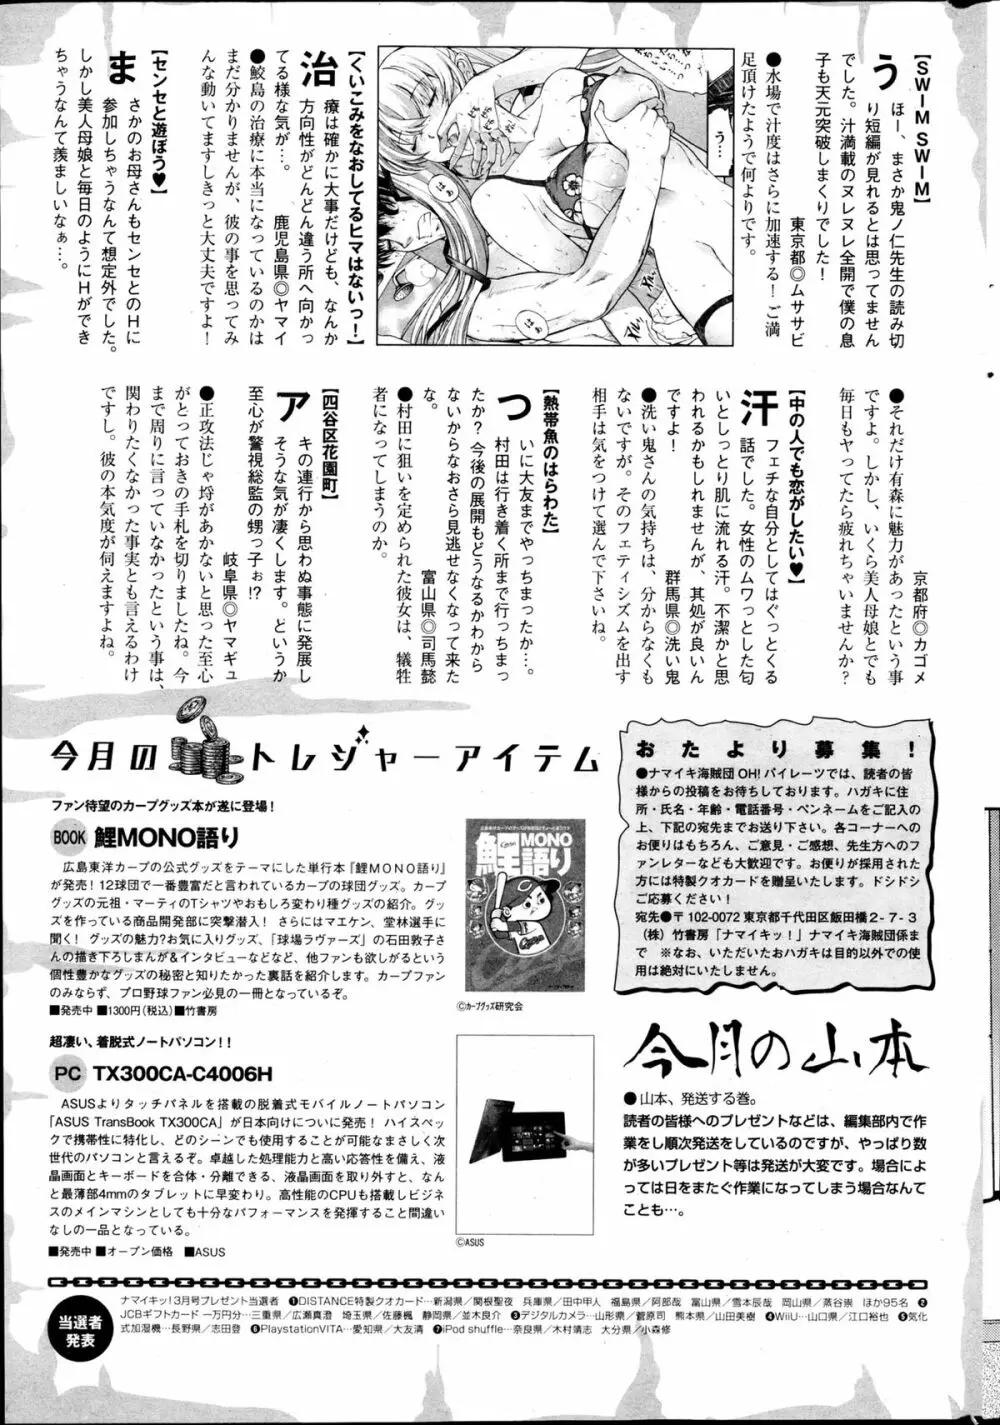 【SWIM SWIM】
うほー、まさか鬼ノ仁先生の読み切
り短編が見れるとは思ってません
でした。汁満載のヌレヌレ全開で僕の息
子も天元突破しまくりでした！
東京都◎ムササビ
●水場で汁度はさらに加速する！ご満
足頂けたようで何よりです。
う…
【くいこみをなおしてるヒマはないっ！】
治療は確かに大事だけども、なんか
方向性がどんどん違う所へ向かっ
てる様な気が…。
鹿児島県◎ヤマイ
●鮫島の治療に本当になっているのかは
まだ分かりませんが、彼の事を思ってみ
んな動いてますしきっと大丈夫ですよ！
【センセと遊ぼう♥】
まさかのお母さんもセンセとのHに
参加しちゃうなんて想定外でした。
しかし美人母娘と毎日のようにHができ
ちゃうなんて羨ましいなぁ…。
京都府◎カゴメ
●それだけ有森に魅力があったという事
ですよ。しかし、いくら美人母娘とでも
毎日もヤってたら疲れちゃいませんか？
【中の人でも恋がしたい♥】
汗フェチな自分としてはぐっとくる
話でした。女性のムワっとした匂
いとしっとり肌に流れる汗。不潔かと思
われるかもしれませんが、其処が良いん
ですよ！
群馬県◎洗い鬼
●洗い鬼さんの気持ちは、分からなくも
ないですが。そのフェティシズムを出す
相手は気をつけて選んで下さいね。
【熱帯魚のはらわた】
ついに大友までやっちまったか…。
村田は行き着く所まで行っちまっ
たか？今後の展開もどうなるかわから
ないからなおさら見逃せなくなって来た
な。
富山県◎司馬懿
●村田に狙いを定められた彼女は、犠牲
者になってしまうのか。
【四谷区花園町】
アキの連行から思わぬ事態に発展し
そうな気が凄くします。というか
至心が警視総監の甥っ子ぉ!?
岐阜県◎ヤマギュ
●正攻法じゃ埒があかないと思った至心
がとっておきの手札を切りましたね。今
まで周りに言っていなかったという事は、
関わりたくなかった事実とも言えるわけ
ですし。彼の本気度が伺えますよね。
今月のトレジャーアイテム
ファン待望のカープグッズ本が遂に登場！
BOOK 鯉MONO語り
広島東洋カープの公式グッズをテーマにした単行本『鯉MONO語り』
が発売！12球団で一番豊富だと言われているカープの球団グッズ。カープ
グッズの元祖・マーティのTシャツやおもしろ変わり種グッズの紹介。グッ
ズを作っている商品開発部に突撃潜入！さらにはマエケン、堂林選手に
聞く！グッズの魅力？お気に入りグッズ、「球場ラヴァーズ」の石田敦子さ
んの描き下ろしまんが&インタビューなどなど、他ファンも欲しがるという
個性豊かなグッズの秘密と知りたかった裏話を紹介します。カープファン
のみならず、プロ野球ファン必見の一冊となっているぞ。
■発売中 ■1300円(税込) ■竹書房
鯉MONO語り
©カープグッズ研究会
超凄い、着脱式ノートパソコン！！
PC TX300CA-C4006H
ASUSよりタッチパネルを搭載の脱着式モバイルノートパソコン
「ASUS TransBook TX300CA」が日本向けについに発売！ハイスペッ
クで携帯性に特化し、どのシーンでも使用することが可能なまさしく次
世代のパソコンと言えるぞ。卓越した処理能力と高い応答性を備え、液
晶画面とキーボードを合体・分離できる、液晶画面を取り外すと、なん
と最薄部4mmのタブレットに早変わり。高性能のCPUも搭載しビジネ
スのメインマシンとしても十分なパフォーマンスを発揮すること間違い
なしの一品となっている。
■発売中 ■オープン価格 ■ASUS
©ASUS
おたより募集！
●ナマイキ海賊団OH!パイレーツでは、読者の皆
様からの投稿をお待ちしております。ハガキに住
所・氏名・年齢・電話番号・ペンネームをご記入の
上、下記の宛先までお送り下さい。各コーナーへの
お便りはもちろん、ご意見・ご感想、先生方へのフ
ァンレターなども大歓迎です。お便りが採用された
方には特製クオカードを贈呈いたします。ドシドシ
ご応募ください！
宛先●〒102-0072 東京都千代田区飯田橋2-7-3
(株)竹書房「ナマイキッ！」ナマイキ海賊団係ま
で ※なお、いただいたおハガキは目的以外での使
用は絶対にいたしません。
今月の山本
●山本、発送する巻。
読者の皆様へのプレゼントなどは、編集部内で作
業をし順次発送をしているのですが、やっぱり数
が多いプレゼント等は発送が大変です。場合によ
っては日をまたぐ作業になってしまう場合なんて
ことも…。
当選者
発表
ナマイキッ！3月号プレゼント当選者 ❶DISTANCE特製クオカード…新潟県／関根聖夜 兵庫県／田中甲人 福島県／阿部哉 富山県／雪本辰哉 岡山県／蒸谷崇 ほか95名 ❷
JCBギフトカード 一万円分…三重県／広瀬真澄 埼玉県／佐藤楓 静岡県／並木良介 ❸デジタルカメラ…山形県／菅原司 熊本県／山田美樹 ❹WiiU…山口県／江口裕也 ❺気化
式加湿機…長野県／志田登 ❻PlaystationVITA…愛知県／大友清 ❼iPod shuffle…奈良県／木村靖志 大分県／小森修